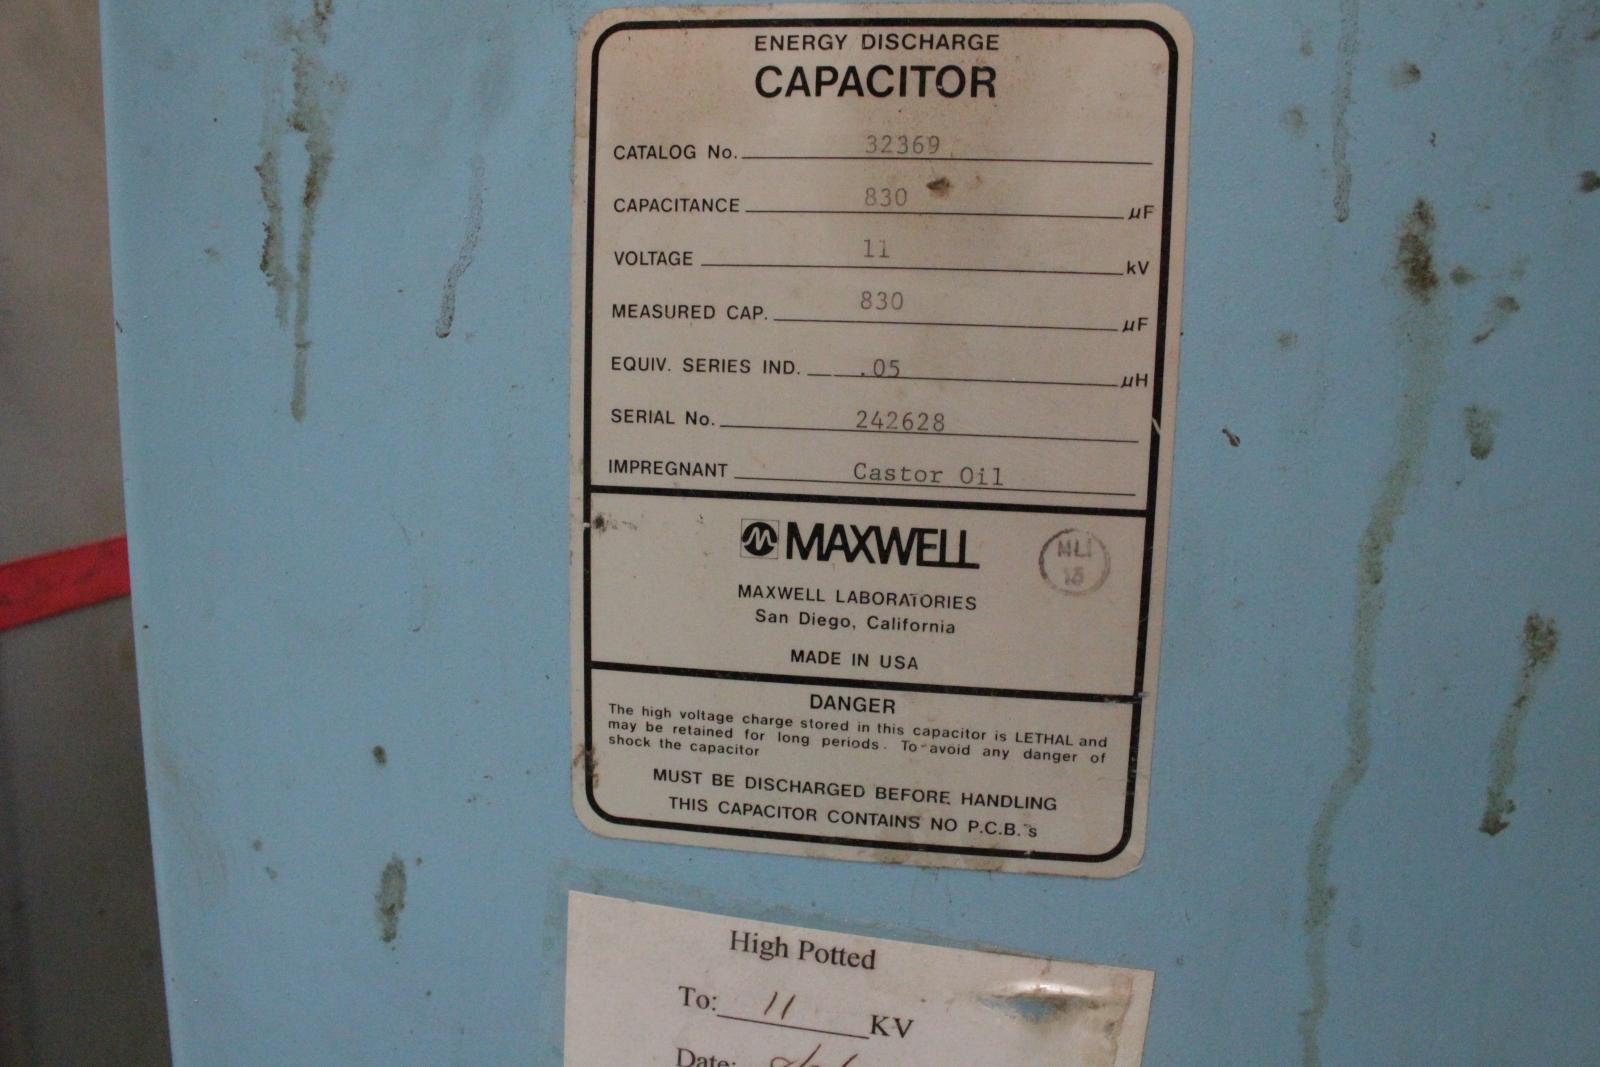 ENERGY DISCHARGE
CAPACITOR
CATALOG No. 32369
CAPACITANCE 830 µF
VOLTAGE 11 kV
MEASURED CAP. 830 µF
EQUIV. SERIES IND. .05 µH
SERIAL No. 242628
IMPREGNANT Castor Oil
MAXWELL
MLI
15
MAXWELL LABORATORIES
San Diego, California
MADE IN USA
DANGER
The high voltage charge stored in this capacitor is LETHAL and
may be retained for long periods. To avoid any danger of
shock the capacitor
MUST BE DISCHARGED BEFORE HANDLING
THIS CAPACITOR CONTAINS NO P.C.B.'s
High Potted
To: 11 KV
Date: